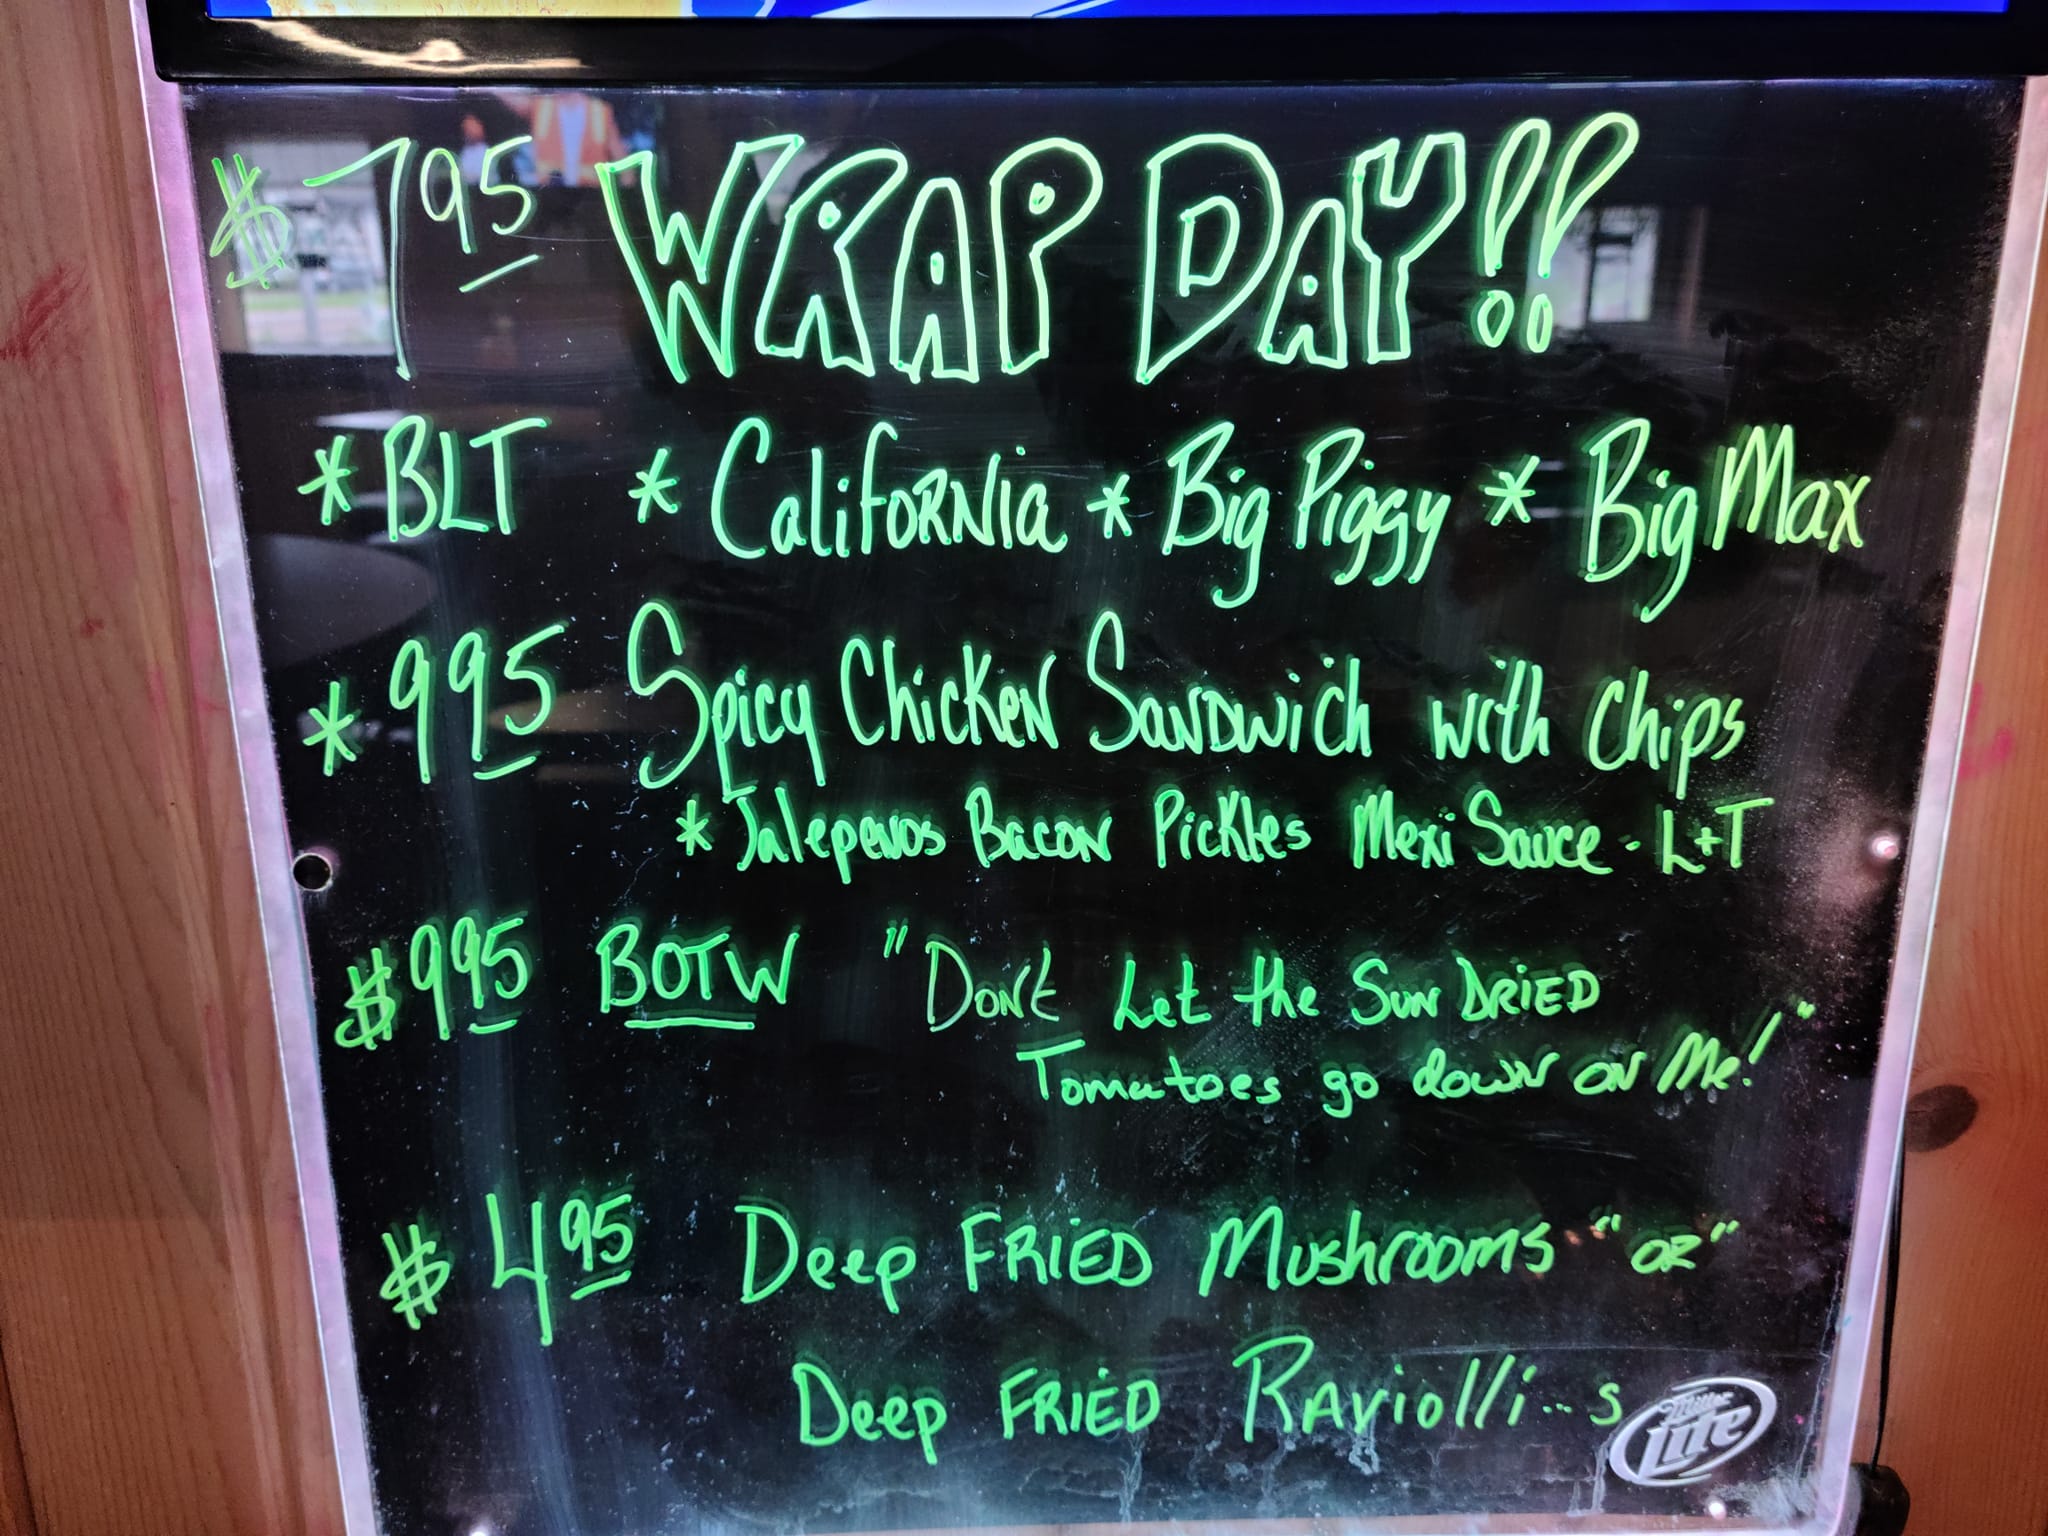 $7.95 WRAP DAY!!
* BLT * California * Big Piggy * Big Max
* 9.95 Spicy Chicken Sandwich with Chips
* Jalepenos Bacon Pickles Mexi Sauce - L+T
$9.95 BOTW "Dont Let the Sun Dried
Tomatoes go down on Me!"
$4.95 Deep Fried Mushrooms "or"
Deep Fried Raviolli...s
Miller Lite